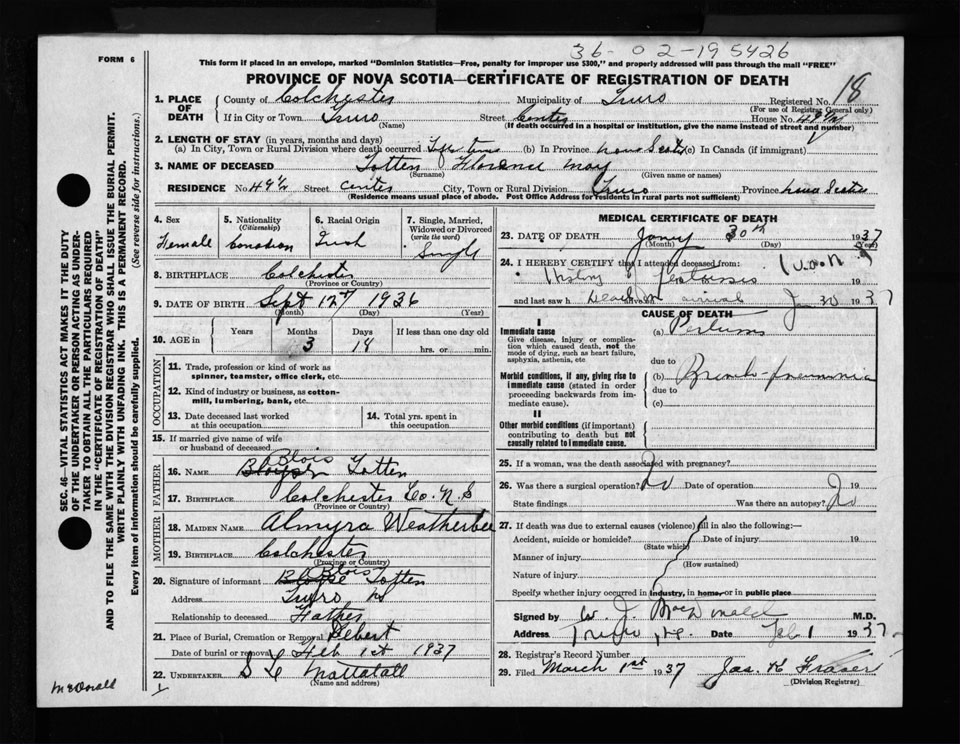 36-02-195426
FORM 6
This form if placed in an envelope, marked "Dominion Statistics—Free, penalty for improper use $300," and properly addressed will pass through the mail "FREE"
PROVINCE OF NOVA SCOTIA—CERTIFICATE OF REGISTRATION OF DEATH
SEC. 46—VITAL STATISTICS ACT MAKES IT THE DUTY
OF THE UNDERTAKER OR PERSON ACTING AS UNDER-
TAKER TO OBTAIN ALL THE PARTICULARS REQUIRED
IN THE "CERTIFICATE OF REGISTRATION OF DEATH"
AND TO FILE THE SAME WITH THE DIVISION REGISTRAR WHO SHALL ISSUE THE BURIAL PERMIT.
WRITE PLAINLY WITH UNFADING INK. THIS IS A PERMANENT RECORD.
Every item of information should be carefully supplied. (See reverse side for instructions.)
1. PLACE OF DEATH County of Colchester Municipality of Truro Registered No. 18
(For use of Registrar General only)
If in City or Town Truro Street Centre House No. 49½
(Name) (If death occurred in a hospital or institution, give the name instead of street and number)
2. LENGTH OF STAY (in years, months and days)
(a) In City, Town or Rural Division where death occurred Life time (b) In Province Nova Scotia (c) In Canada (if immigrant)
3. NAME OF DECEASED Totten Florence May
(Surname) (Given name or names)
RESIDENCE No. 49½ Street Centre City, Town or Rural Division Truro Province Nova Scotia
(Residence means usual place of abode. Post Office Address for residents in rural parts not sufficient)
4. Sex Female
5. Nationality (Citizenship) Canadian
6. Racial Origin Irish
7. Single, Married, Widowed or Divorced (write the word) Single
8. BIRTHPLACE Colchester
(Province or Country)
9. DATE OF BIRTH Sept 17th 1936
(Month) (Day) (Year)
10. AGE in Years Months 3 Days 14 If less than one day old hrs. or min.
OCCUPATION
11. Trade, profession or kind of work as spinner, teamster, office clerk, etc.
12. Kind of industry or business, as cotton-mill, lumbering, bank, etc.
13. Date deceased last worked at this occupation
14. Total yrs. spent in this occupation
15. If married give name of wife or husband of deceased
FATHER
16. NAME Blois Totten
17. BIRTHPLACE Colchester Co. N.S
(Province or Country)
MOTHER
18. MAIDEN NAME Almyra Weatherbee
19. BIRTHPLACE Colchester
(Province or Country)
20. Signature of informant Blois Totten
Address Truro NS
Relationship to deceased Father
21. Place of Burial, Cremation or Removal Debert
Date of burial or removal Feb 1st 1937
22. UNDERTAKER Mattatall
(Name and address)
MEDICAL CERTIFICATE OF DEATH
23. DATE OF DEATH Jany 30th 1937
(Month) (Day) (Year)
24. I HEREBY CERTIFY that I attended deceased from:
History of pertussis 19
and last saw h Dead on arrival Jan 30 1937
CAUSE OF DEATH
I
Immediate cause
Give disease, injury or complication which caused death, not the mode of dying, such as heart failure, asphyxia, asthenia, etc
(a) Pertussis
due to
Morbid conditions, if any, giving rise to immediate cause (stated in order proceeding backwards from immediate cause).
(b) Broncho-pneumonia
due to
(c)
II
Other morbid conditions (if important) contributing to death but not causally related to immediate cause.
25. If a woman, was the death associated with pregnancy?
26. Was there a surgical operation? No Date of operation 19
State findings Was there an autopsy? No
27. If death was due to external causes (violence) fill in also the following:—
Accident, suicide or homicide? Date of injury 19
(State which)
Manner of injury
(How sustained)
Nature of injury
Specify whether injury occurred in industry, in home, or in public place
Signed by W. J. MacDonald M.D.
Address Truro N.S. Date Feb 1 1937
28. Registrar's Record Number
29. Filed March 1st 1937 Jas. H Fraser
(Division Registrar)